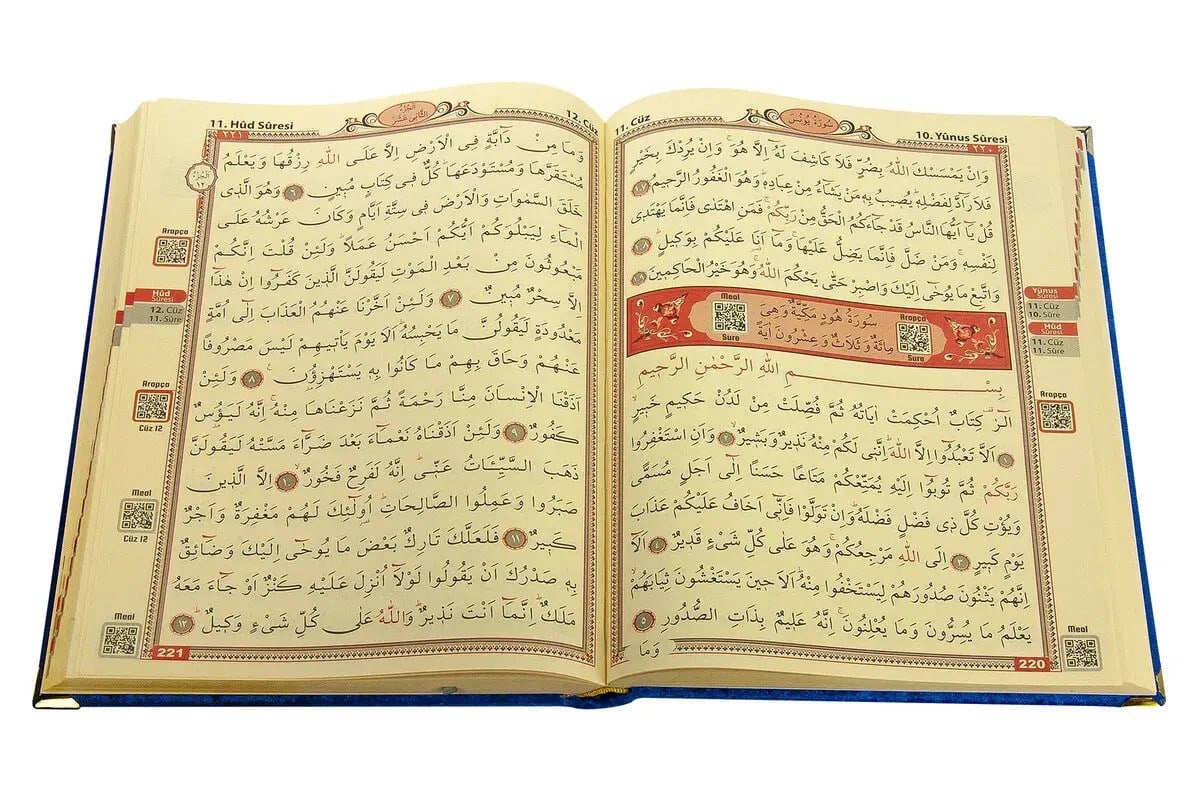 11. Cüz
سُورَةُ يُونُسَ
10. Yûnus Sûresi
٢٢٠
وَاِنْ يَمْسَسْكَ اللّٰهُ بِضُرٍّ فَلَا كَاشِفَ لَهُٓ اِلَّا هُوَۚ وَاِنْ يُرِدْكَ بِخَيْرٍ
فَلَا رَٓادَّ لِفَضْلِه۪ۜ يُص۪يبُ بِه۪ مَنْ يَشَٓاءُ مِنْ عِبَادِه۪ۜ وَهُوَ الْغَفُورُ الرَّح۪يمُ ﴿١٠٧﴾
قُلْ يَٓا اَيُّهَا النَّاسُ قَدْ جَٓاءَكُمُ الْحَقُّ مِنْ رَبِّكُمْۚ فَمَنِ اهْتَدٰى فَاِنَّمَا يَهْتَد۪ي
لِنَفْسِه۪ۚ وَمَنْ ضَلَّ فَاِنَّمَا يَضِلُّ عَلَيْهَاۚ وَمَٓا اَنَا۬ عَلَيْكُمْ بِوَك۪يلٍۜ ﴿١٠٨﴾
وَاتَّبِعْ مَا يُوحٰٓى اِلَيْكَ وَاصْبِرْ حَتّٰى يَحْكُمَ اللّٰهُۚ وَهُوَ خَيْرُ الْحَاكِم۪ينَ ﴿١٠٩﴾
Meal
Sure
سُورَةُ هُودٍ مَكِّيَّةٌ وَهِيَ
مِائَةٌ وَثَلَاثٌ وَعِشْرُونَ اٰيَةً
Arapça
Sure
بِسْــــــمِ اللّٰهِ الرَّحْمٰنِ الرَّح۪يمِ
الٓرٰ۠ كِتَابٌ اُحْكِمَتْ اٰيَاتُهُ ثُمَّ فُصِّلَتْ مِنْ لَدُنْ حَك۪يمٍ خَب۪يرٍۙ
﴿١﴾ اَلَّا تَعْبُدُٓوا اِلَّا اللّٰهَۜ اِنَّن۪ي لَكُمْ مِنْهُ نَذ۪يرٌ وَبَش۪يرٌۙ ﴿٢﴾ وَاَنِ اسْتَغْفِرُوا
رَبَّكُمْ ثُمَّ تُوبُٓوا اِلَيْهِ يُمَتِّعْكُمْ مَتَاعاً حَسَناً اِلٰٓى اَجَلٍ مُسَمًّى
وَيُؤْتِ كُلَّ ذ۪ي فَضْلٍ فَضْلَهُۜ وَاِنْ تَوَلَّوْا فَاِنّ۪ٓي اَخَافُ عَلَيْكُمْ عَذَابَ
يَوْمٍ كَب۪يرٍ ﴿٣﴾ اِلَى اللّٰهِ مَرْجِعُكُمْۚ وَهُوَ عَلٰى كُلِّ شَيْءٍ قَد۪يرٌ ﴿٤﴾ اَلَٓا
اِنَّهُمْ يَثْنُونَ صُدُورَهُمْ لِيَسْتَخْفُوا مِنْهُۜ اَلَا ح۪ينَ يَسْتَغْشُونَ ثِيَابَهُمْۙ
يَعْلَمُ مَا يُسِرُّونَ وَمَا يُعْلِنُونَۚ اِنَّهُ عَل۪يمٌ بِذَاتِ الصُّدُورِ ﴿٥﴾
وَمَا
220
Yûnus
Sûresi
11. Cüz
10. Sûre
Hûd
Sûresi
11. Cüz
11. Sûre
Arapça
Meal
11. Hûd Sûresi
اَلْجُزْءُ
الثَّانِي عَشَرَ
12. Cüz
٢٢١
وَمَا مِنْ دَٓابَّةٍ فِي الْاَرْضِ اِلَّا عَلَى اللّٰهِ رِزْقُهَا وَيَعْلَمُ
مُسْتَقَرَّهَا وَمُسْتَوْدَعَهَاۜ كُلٌّ ف۪ي كِتَابٍ مُب۪ينٍ ﴿٦﴾ وَهُوَ الَّذ۪ي
خَلَقَ السَّمٰوَاتِ وَالْاَرْضَ ف۪ي سِتَّةِ اَيَّامٍ وَكَانَ عَرْشُهُ عَلَى
الْمَٓاءِ لِيَبْلُوَكُمْ اَيُّكُمْ اَحْسَنُ عَمَلاًۜ وَلَئِنْ قُلْتَ اِنَّكُمْ
مَبْعُوثُونَ مِنْ بَعْدِ الْمَوْتِ لَيَقُولَنَّ الَّذ۪ينَ كَفَرُٓوا اِنْ هٰذَٓا
اِلَّا سِحْرٌ مُب۪ينٌ ﴿٧﴾ وَلَئِنْ اَخَّرْنَا عَنْهُمُ الْعَذَابَ اِلٰٓى اُمَّةٍ
مَعْدُودَةٍ لَيَقُولُنَّ مَا يَحْبِسُهُۜ اَلَا يَوْمَ يَأْت۪يهِمْ لَيْسَ مَصْرُوفاً
عَنْهُمْ وَحَاقَ بِهِمْ مَا كَانُوا بِه۪ يَسْتَهْزِؤُ۫نَ۟ ﴿٨﴾ وَلَئِنْ
اَذَقْنَا الْاِنْسَانَ مِنَّا رَحْمَةً ثُمَّ نَزَعْنَاهَا مِنْهُۚ اِنَّهُ لَيَؤُ۫سٌ
كَفُورٌ ﴿٩﴾ وَلَئِنْ اَذَقْنَاهُ نَعْمَٓاءَ بَعْدَ ضَرَّٓاءَ مَسَّتْهُ لَيَقُولَنَّ
ذَهَبَ السَّيِّـَٔاتُ عَنّ۪يۜ اِنَّهُ لَفَرِحٌ فَخُورٌۙ ﴿١٠﴾ اِلَّا الَّذ۪ينَ
صَبَرُوا وَعَمِلُوا الصَّالِحَاتِۜ اُو۬لٰٓئِكَ لَهُمْ مَغْفِرَةٌ وَاَجْرٌ
كَب۪يرٌ ﴿١١﴾ فَلَعَلَّكَ تَارِكٌ بَعْضَ مَا يُوحٰٓى اِلَيْكَ وَضَٓائِقٌ
بِه۪ صَدْرُكَ اَنْ يَقُولُوا لَوْلَٓا اُنْزِلَ عَلَيْهِ كَنْزٌ اَوْ جَٓاءَ مَعَهُ
مَلَكٌۜ اِنَّمَٓا اَنْتَ نَذ۪يرٌۜ وَاللّٰهُ عَلٰى كُلِّ شَيْءٍ وَك۪يلٌۜ ﴿١٢﴾
221
اَلْجُزْءُ
١٢
Arapça
Hûd
Sûresi
12. Cüz
11. Sûre
Arapça
Cüz 12
Meal
Cüz 12
Meal